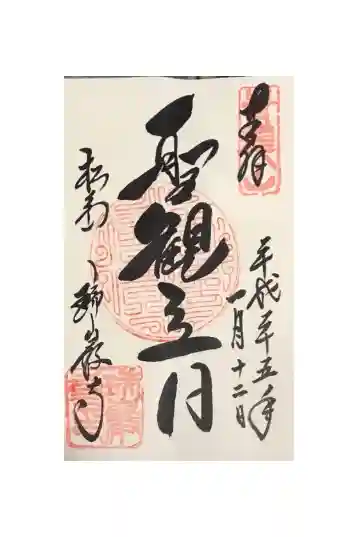 奉拝
平成二十五年
一月十二日
聖観音
松島
瑞巌寺